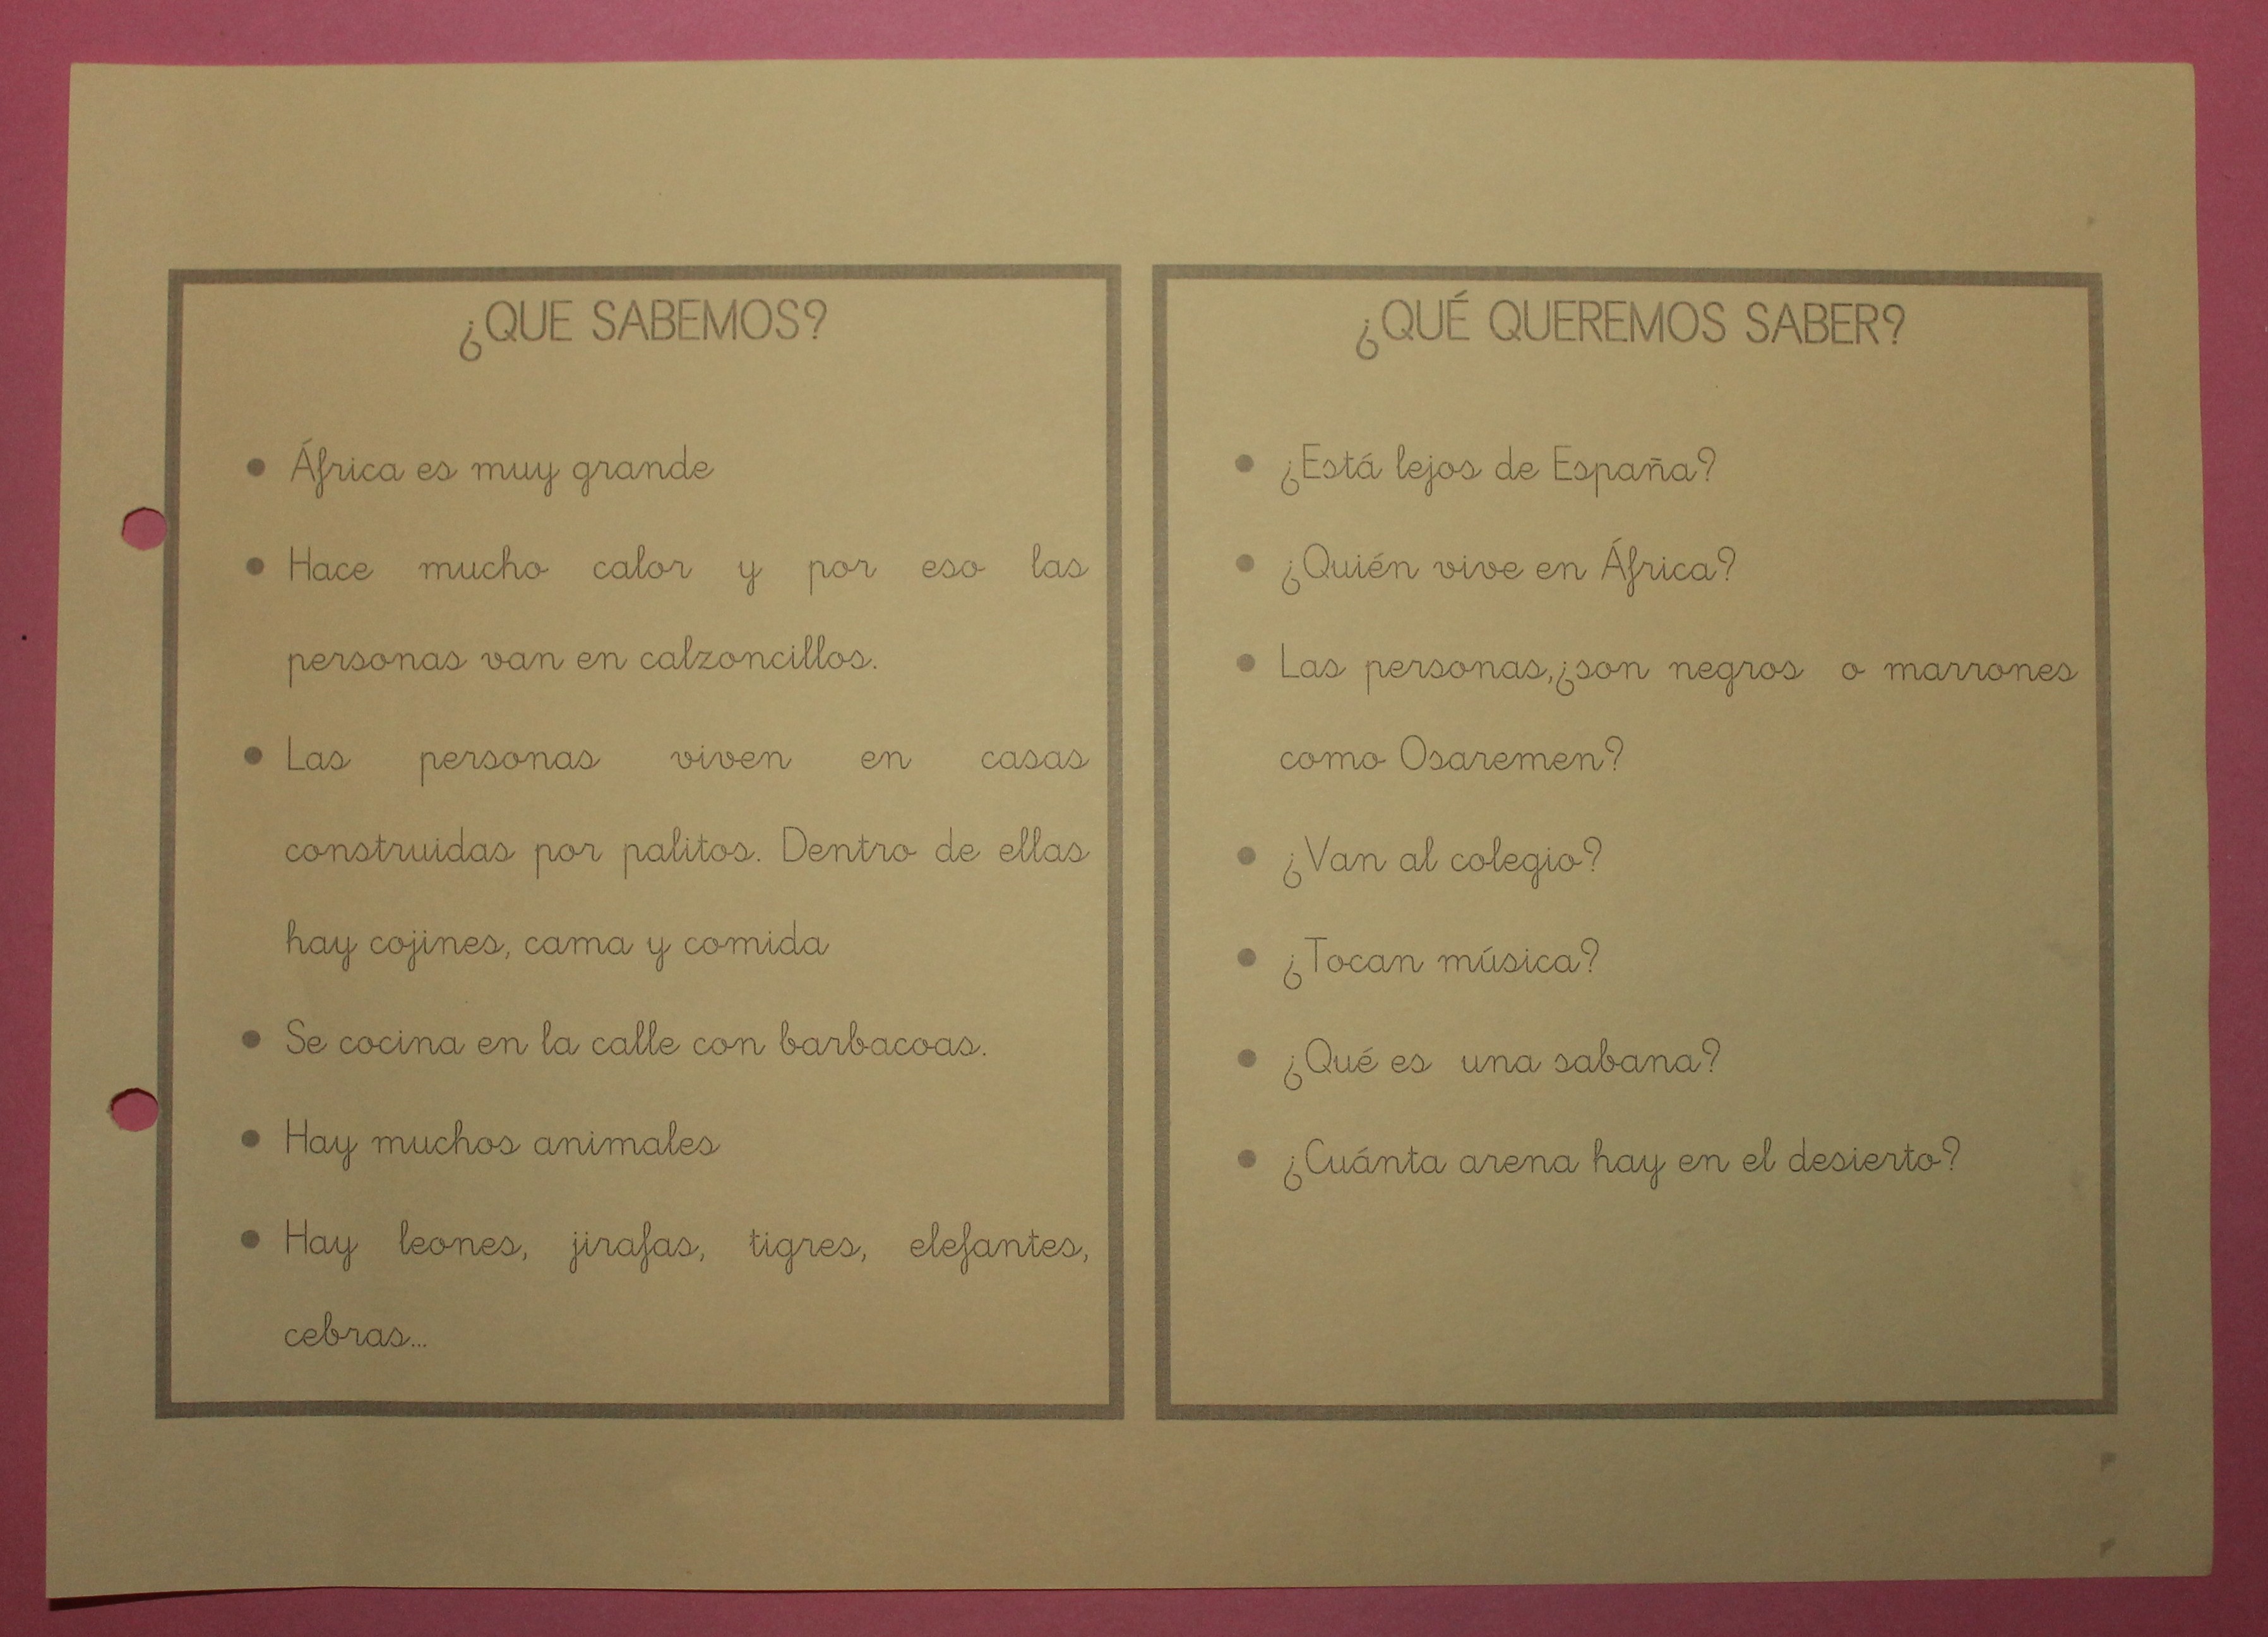 ¿QUE SABEMOS?
• África es muy grande
• Hace mucho calor y por eso las
personas van en calzoncillos.
• Las personas viven en casas
construidas por palitos. Dentro de ellas
hay cojines, cama y comida
• Se cocina en la calle con barbacoas.
• Hay muchos animales
• Hay leones, jirafas, tigres, elefantes,
cebras...
¿QUÉ QUEREMOS SABER?
• ¿Está lejos de España?
• ¿Quién vive en África?
• Las personas,¿son negros o marrones
como Osaremen?
• ¿Van al colegio?
• ¿Tocan música?
• ¿Qué es una sabana?
• ¿Cuánta arena hay en el desierto?